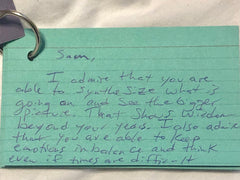 Sam,
I admire that you are
able to synthesize what is
going on and see the bigger
picture. That shows wisdom
beyond your years. I also admire
that you are able to keep
emotions in balance and think
even if times are difficult